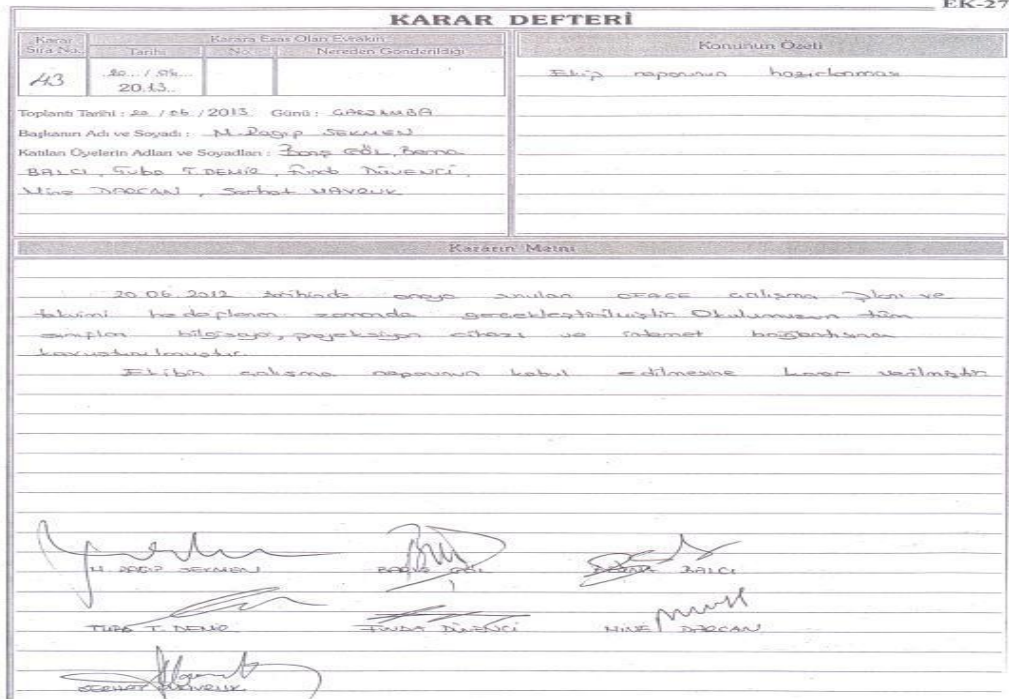 EK-27
KARAR DEFTERİ
Karar Sıra No. Karara Esas Olan Evrakın Konunun Özeti
Tarihi No. Nereden Gönderildiği
43 20 / 06 2013 Ekip raporunun hazırlanması
Toplantı Tarihi : 20 / 06 / 2013 Günü : ÇARŞAMBA
Başkanın Adı ve Soyadı : M. Ragıp SEKMEN
Katılan Üyelerin Adları ve Soyadları : Barış GÖL, Berna
BALCI, Tuba T. DEMİR, Funda DÜVENCİ,
Mine DARCAN, Serhat
Kararın Metni
20.06.2012 tarihinde onaya sunulan çalışma planı ve
takvimi hedeflenen zamanda gerçekleştirilmiştir. Okulumuzun tüm
sınıfları bilgisayar, projeksiyon cihazı ve internet bağlantısına
kavuşturulmuştur.
Ekibin çalışma raporunun kabul edilmesine karar verilmiştir
M. RAGIP SEKMEN BARIŞ GÖL BERNA BALCI
TUBA T. DEMİR FUNDA DÜVENCİ MİNE DARCAN
SERHAT